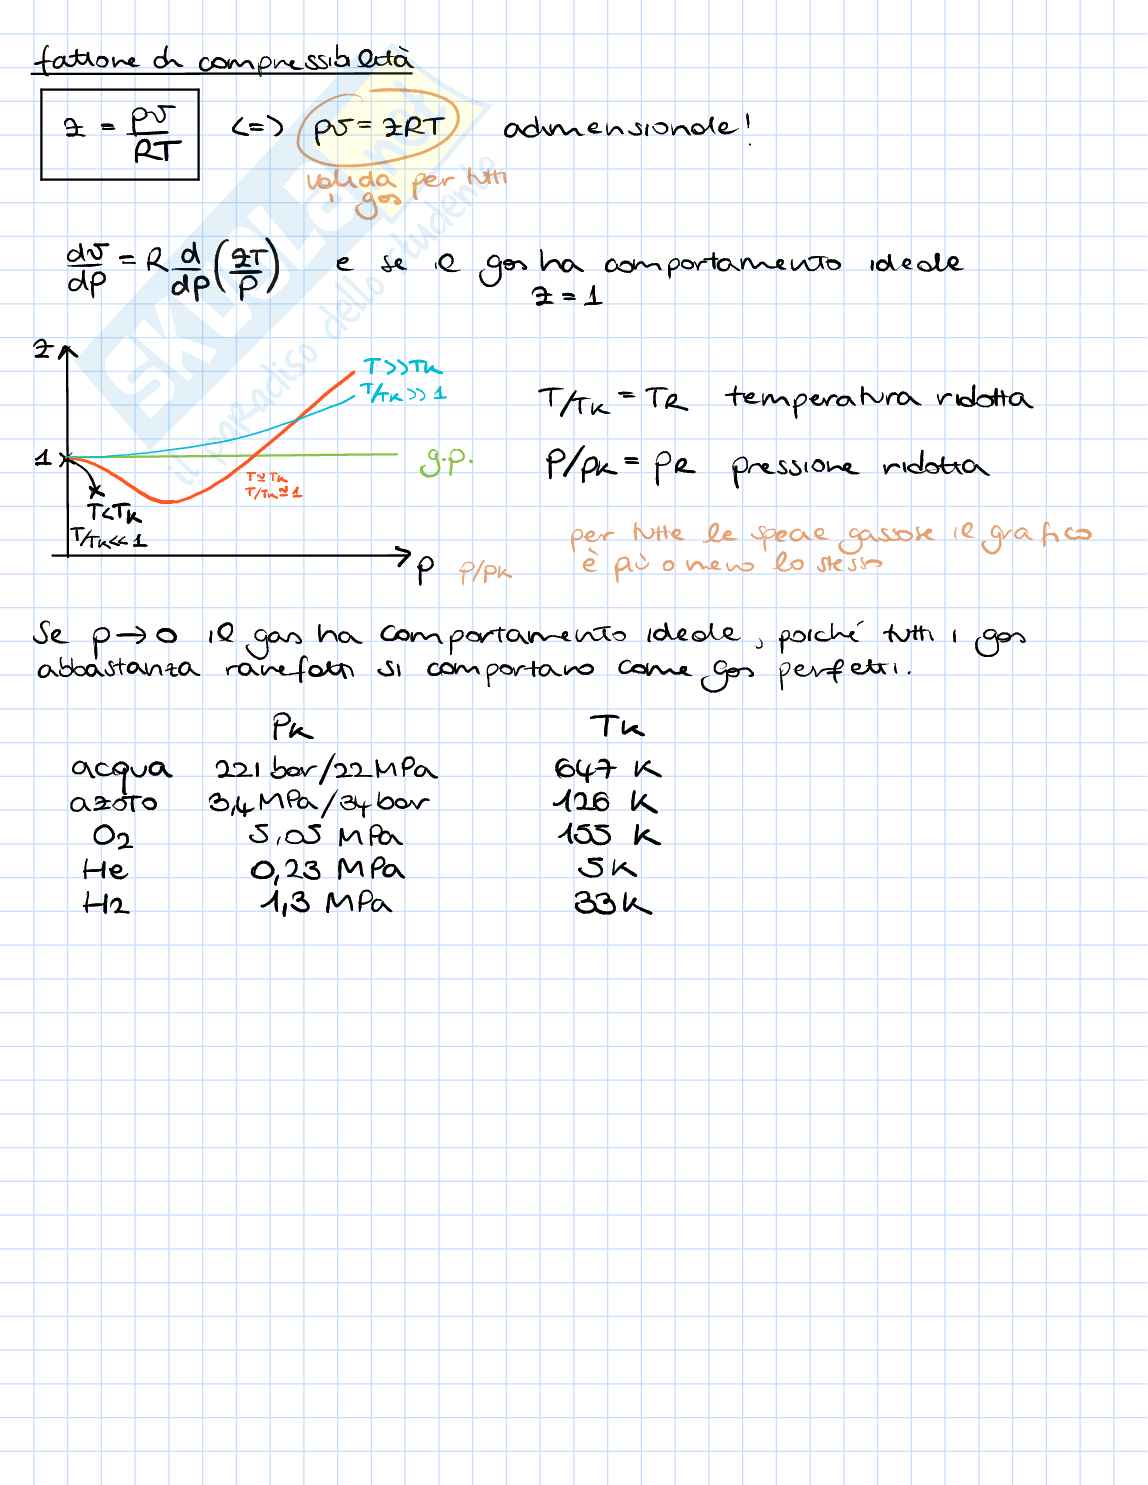 fattore di compressibilità
z = pv/RT <=> pv = zRT adimensionale!
valida per tutti
i gas
dv/dp = R d/dp (zT/p) e se il gas ha comportamento ideale
z = 1
z
T>>Tk
T/Tk >> 1
1
g.p.
T≃Tk
T/Tk≃1
T<Tk
T/Tk<<1
p p/pk
T/Tk = TR temperatura ridotta
P/pk = PR pressione ridotta
per tutte le specie gassose il grafico
è più o meno lo stesso
Se p→0 il gas ha comportamento ideale, poiché tutti i gas
abbastanza rarefatti si comportano come gas perfetti.
Pk Tk
acqua 221 bar/22 MPa 647 K
azoto 3,4 MPa/34 bar 126 K
O2 5,05 MPa 155 K
He 0,23 MPa 5K
H2 1,3 MPa 33K
SKUOLA.net
il paradiso dello studente